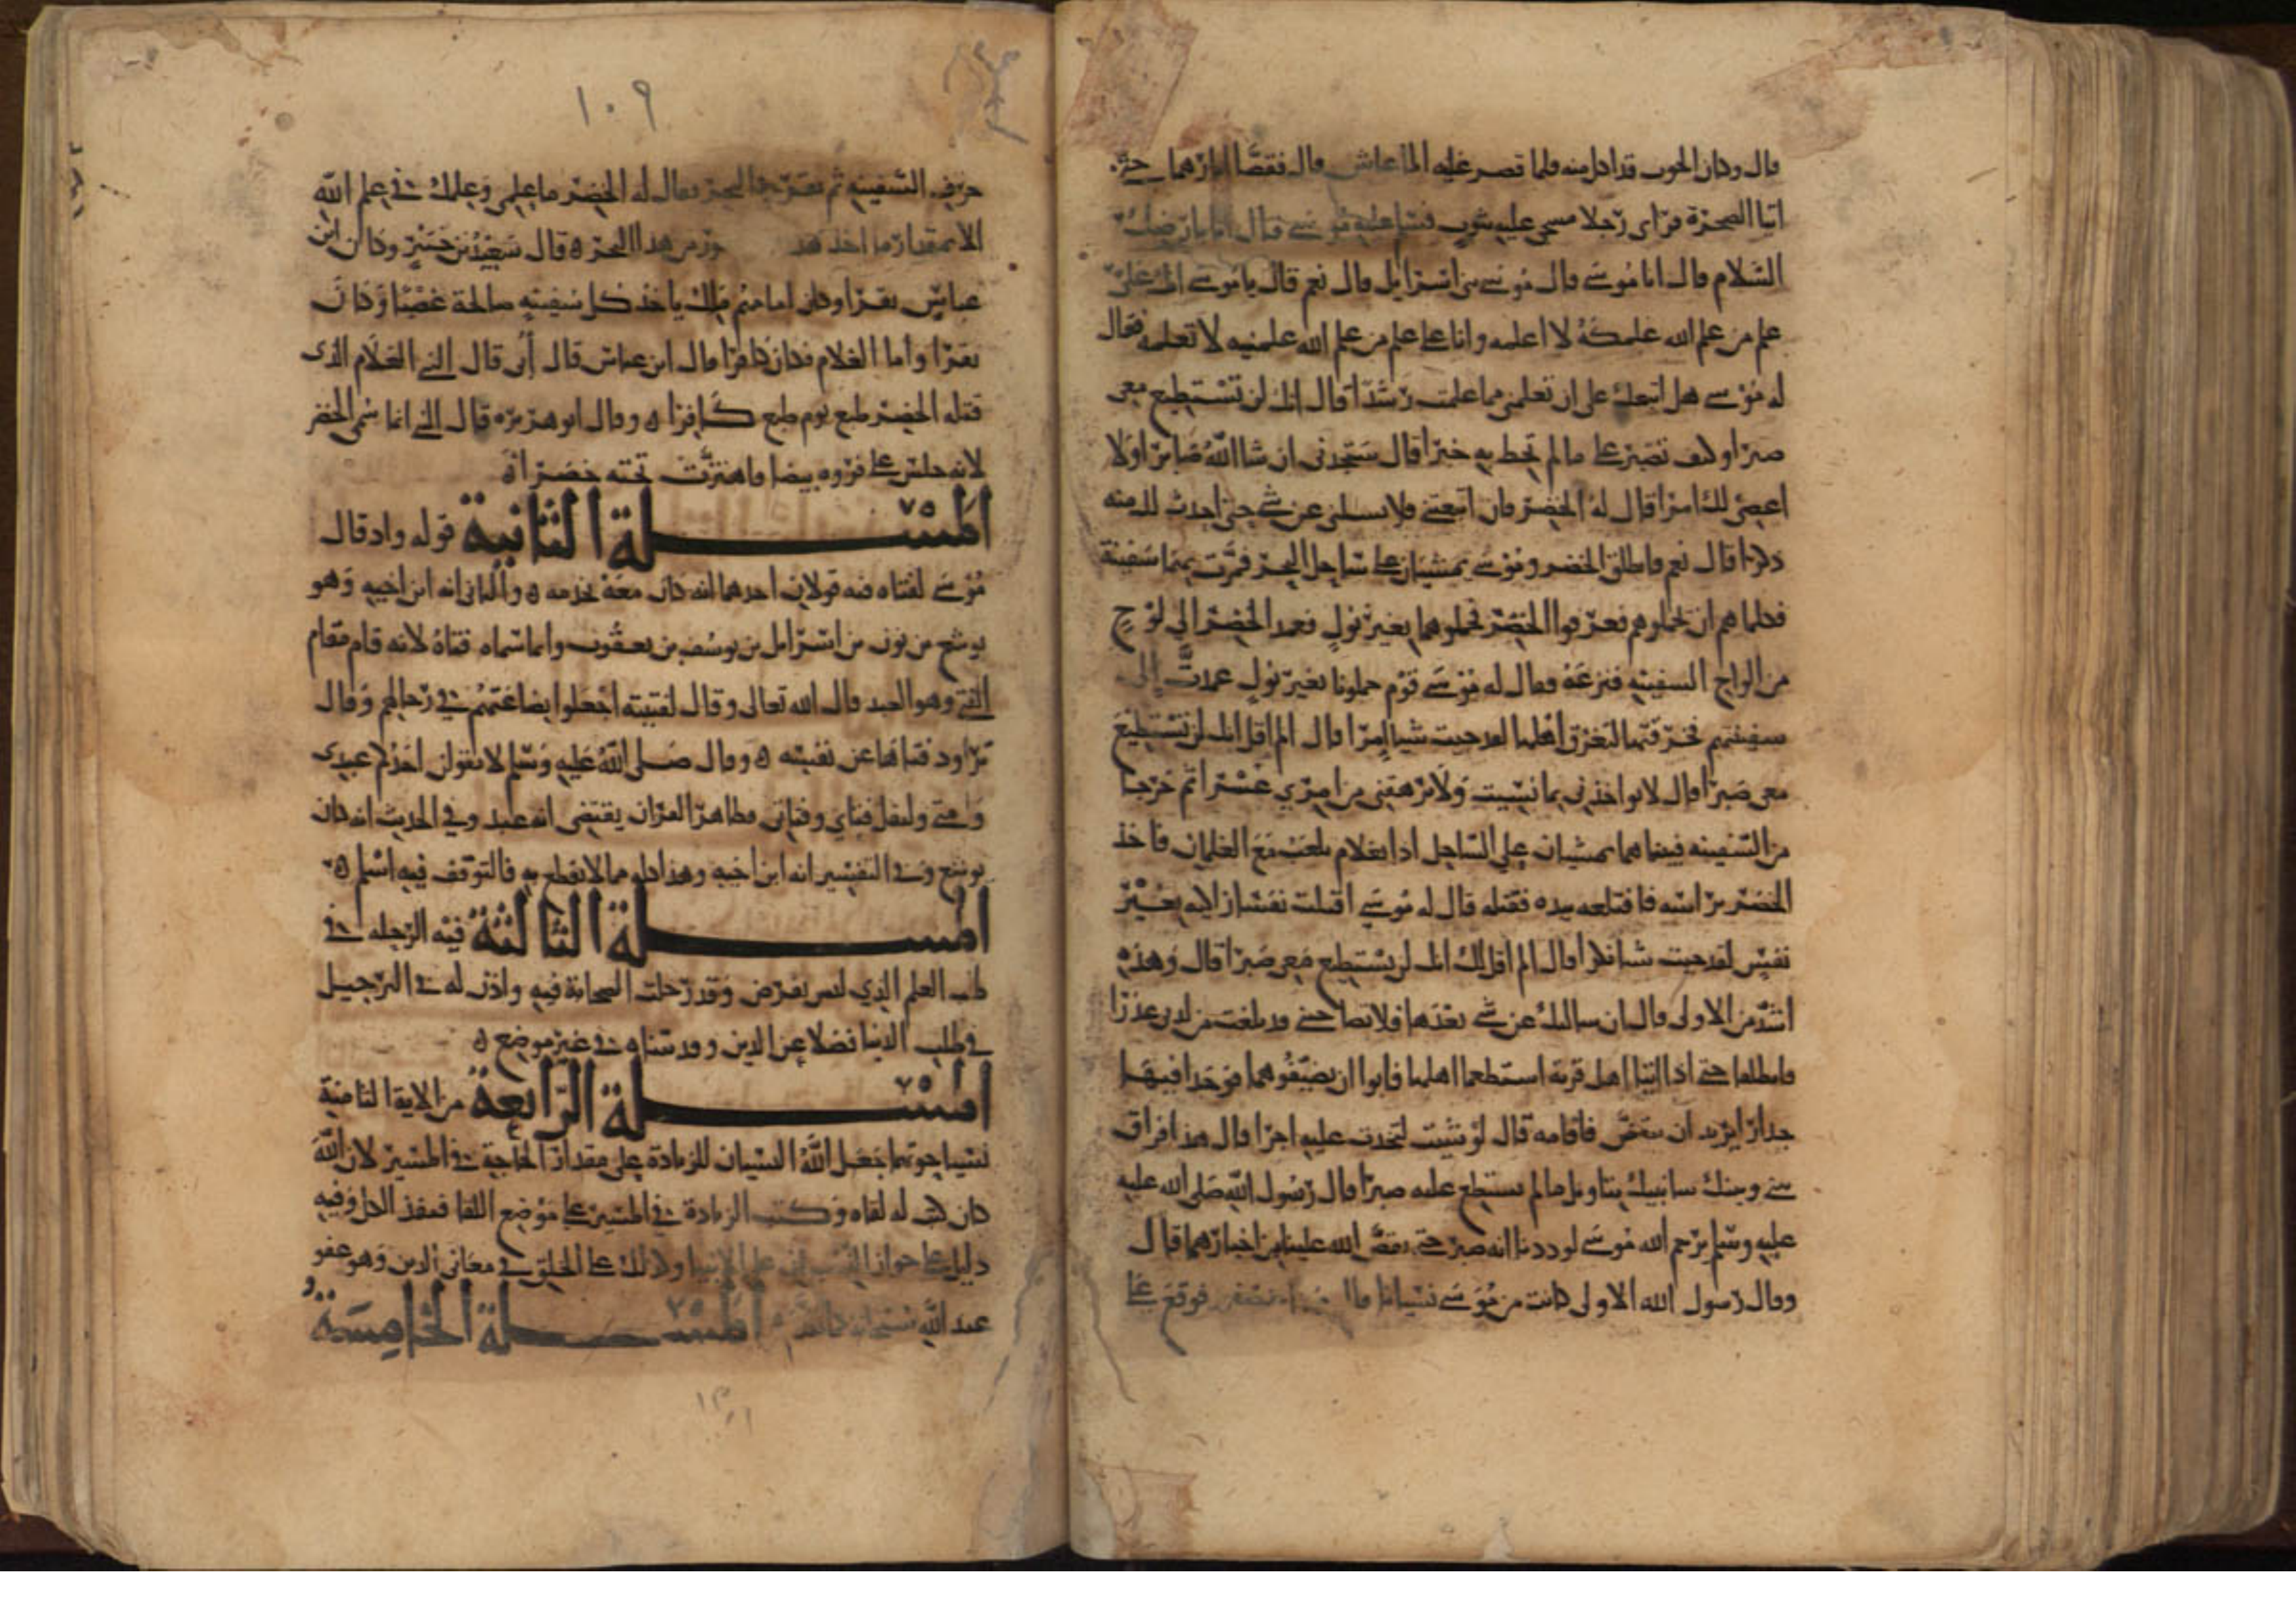 قال وكان الحوت قد اكل منه فلما قصر عليه الماء عاش قال فقصا اثارهما حتى
اتيا الصخرة فراى رجلا مسجى عليه بثوب فسلم عليه موسى فقال انا بارضك
السلام قال انا موسى قال موسى بنى اسرايل قال نعم قال يا موسى انك على
علم من علم الله علمكه لا اعلمه وانا على علم من علم الله علمنيه لا تعلمه فقال
له موسى هل اتبعك على ان تعلمنى مما علمت رشدا قال انك لن تستطيع معى
صبرا وكيف تصبر على ما لم تحط به خبرا قال ستجدنى ان شا الله صابرا ولا
اعصى لك امرا قال له الخضر فان اتبعتنى فلا تسلنى عن شى حتى احدث لك منه
ذكرا قال نعم فانطلق الخضر وموسى يمشيان على ساحل البحر فمرت بهما سفينة
فكلماهم ان يحملوهم فعرفوا الخضر فحملوهما بغير نول فعمد الخضر الى لوح
من الواح السفينه فنزعه فقال له موسى قوم حملونا بغير نول عمدت الى
سفينتهم فخرقتها لتغرق اهلها لقد جيت شيا امرا قال الم اقل انك لن تستطيع
معى صبرا قال لا تواخذنى بما نسيت ولا ترهقنى من امرى عسرا ثم خرجا
من السفينه فبينما هما يمشيان على الساحل اذا بغلام يلعب مع الغلمان فاخذ
الخضر براسه فاقتلعه بيده فقتله قال له موسى اقتلت نفسا زاكيه بغير
نفس لقد جيت شيا نكرا قال الم اقل لك انك لن تستطيع معى صبرا قال وهذه
اشد من الاولى قال ان سالتك عن شى بعدها فلا تصاحبنى قد بلغت من لدنى عذرا
فانطلقا حتى اذا اتيا اهل قرية استطعما اهلها فابوا ان يضيفوهما فوجدا فيها
جدارا يريد ان ينقض فاقامه قال لو شيت لتخذت عليه اجرا قال هذا فراق
بينى وبينك سانبيك بتاويل ما لم تستطع عليه صبرا قال رسول الله صلى الله عليه
عليه وسلم يرحم الله موسى لوددنا انه صبر حتى يقص الله علينا من اخبارهما قال
وقال رسول الله الاولى كانت من موسى نسيانا قال عصفور فوقع على
١٠٩
حرف السفينه ثم نقر فى البحر فقال له الخضر ما علمى وعلمك فى علم الله
الا بمقدار ما اخذ هذا من هذا البحر قال سعيد بن جبير وكان ابن
عباس يقرا وكان امامهم ملك ياخذ كل سفينه صالحة غصبا وكان
يقرا واما الغلام فكان كافرا قال ابن عباس قال أبى قال النبى الغلام الذى
قتله الخضر طبع يوم طبع كافرا وقال ابو هريره قال النبى انما سمى الخضر
لانه جلس على فروه بيضا فاهتزت تحته خضرا
المسـلة الثانية قوله واذ قال
موسى لفتاه فيه قولان احدهما انه كان معه يخدمه والثانى انه ابن اخيه وهو
يوشع بن نون بن اسرايل بن يوسف بن يعقوب وانما سماه فتاه لانه قام مقام
الفتى وهو العبد قال الله تعالى وقال لفتيته اجعلوا بضاعتهم فى رحالهم وقال
تراود فتاها عن نفسه وقال صلى الله عليه وسلم لا يقولن احدكم عبدى
وامتى وليقل فتاى وفتاتى فظاهر القران يقتضى انه عبد وفى الحديث انه كان
يوشع وفى التفسير انه ابن اخيه وهذا كله مما لا نقطع به فالتوقف فيه اسلم
المسـلة الثالثة فيه الرحله فى
طلب العلم الذي ليس بفرض وقد رحلت الصحابة فيه واذن له فى الترحيل
فى طلب الدنيا فضلا عن الدين وقد بيناه فى غير موضع
المسـلة الرابعة من الاية الثامنة
نسيا حوتهما جعل الله النسيان للزيادة على مقدار الحاجة فى المسير لان الله
كان كتب له لقاه وكتب الزيادة فى المسير على موضع اللقا فنفذ الكل وفيه
دليل على جواز النسيان على الانبيا وكذلك على الخلق فى معانى الدين وهو عفو
عند الله سبحانه كما المسـلة الخامسة